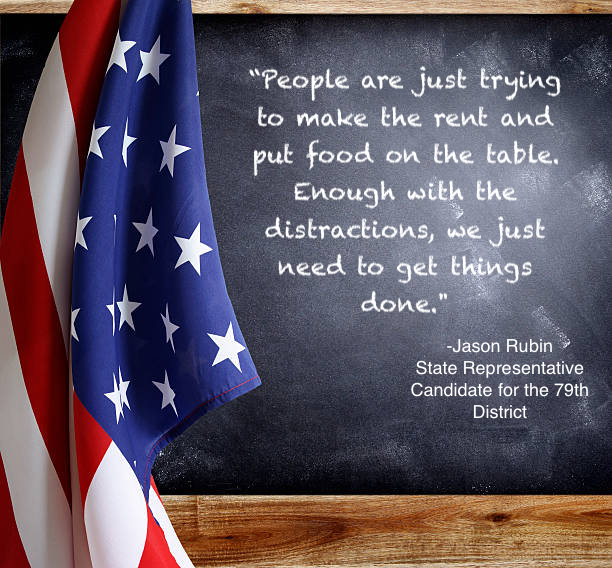 “People are just trying
to make the rent and
put food on the table.
Enough with the
distractions, we just
need to get things
done."
-Jason Rubin
State Representative
Candidate for the 79th
District